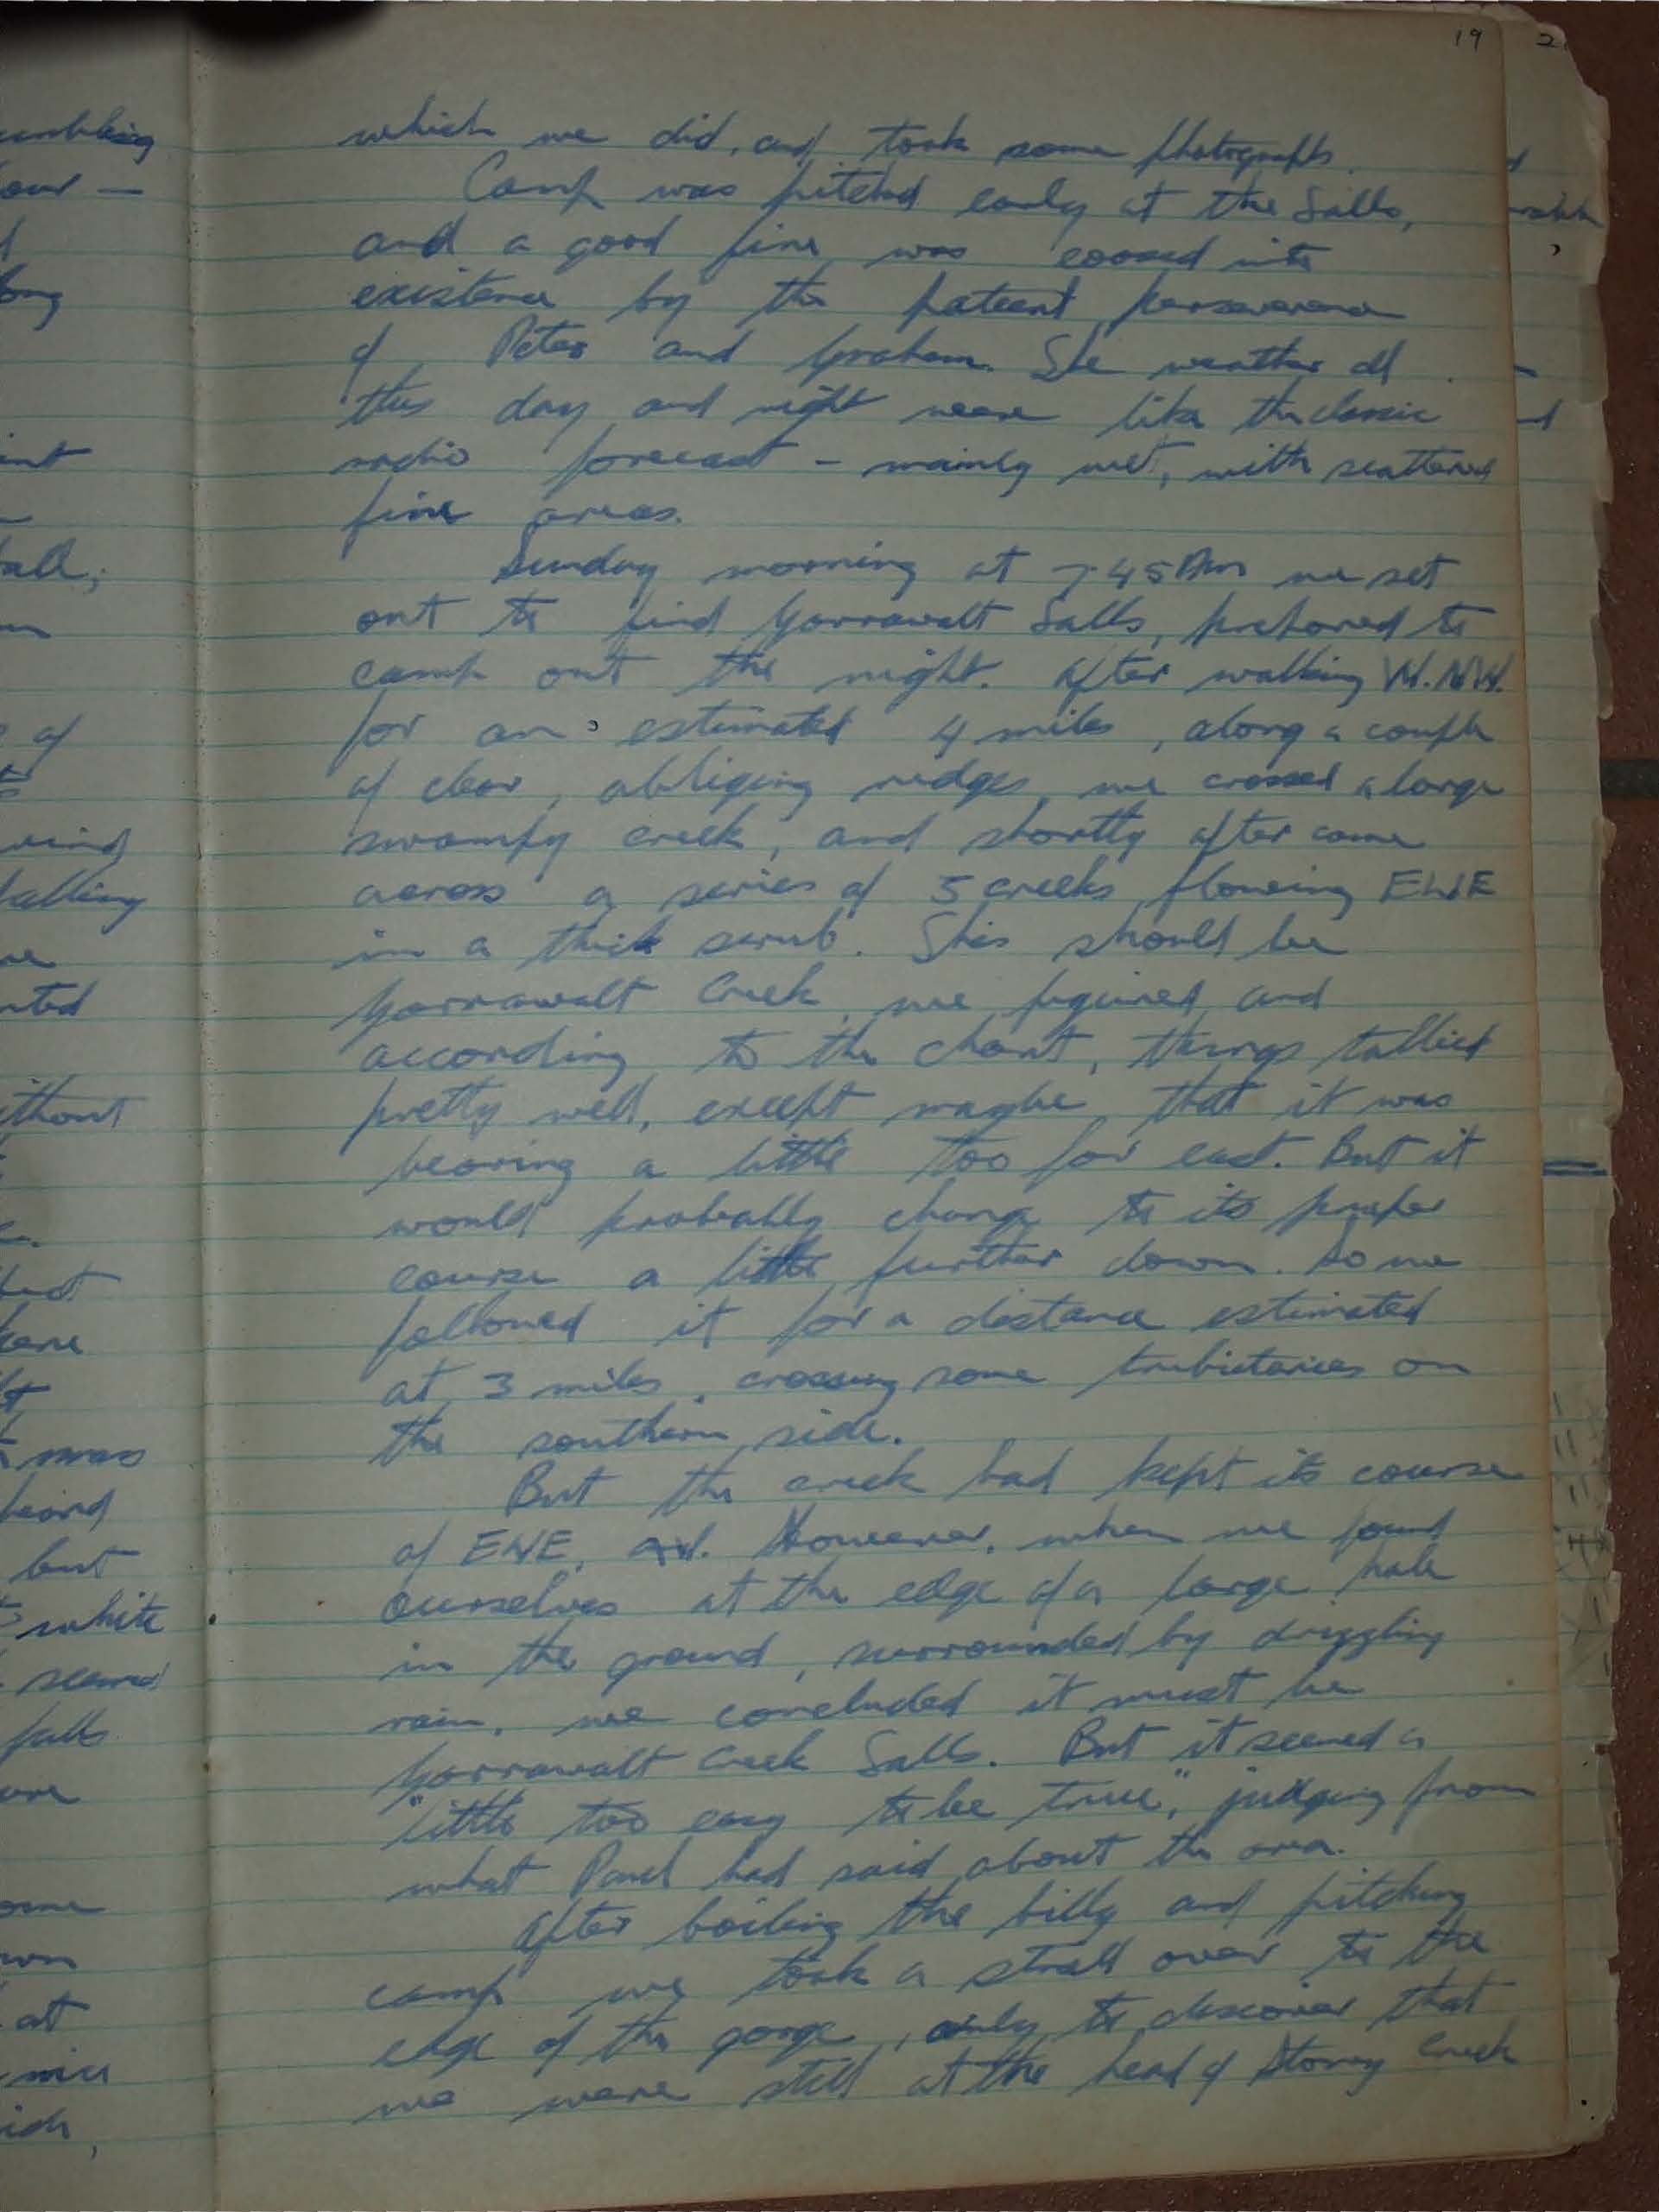 19
which we did, and took some photographs.
Camp was pitched early at the Falls,
and a good fire was coaxed into
existence by the pateent perseverance
of Peter and Graham. The weather all
this day and night were like the classic
radio forecast - mainly wet, with scattered
fine areas.
Sunday morning at 7.45 Am we set
out to find Yarrawalt Falls, prepared to
camp out the night. After walking W.NW.
for an estimated 4 miles, along a couple
of clear, obliging ridges, we crossed a large
swampy creek, and shortly after came
across a series of 5 creeks flowing
in a thick scrub. This should be
Yarrawalt Creek, we figured, and
according to the chart, things tallied
pretty well, except maybe, that it was
bearing a little too far east. But it
would probably change to its proper
course a little further down. So we
followed it for a distance estimated
at 3 miles, crossing some trubietaries on
the southern side.
But the creek had kept its course
of However, when we found
ourselves at the edge of a large hole
in the ground, surrounded by drizzling
rain, we concluded it must be
Yarrawalt Creek Falls. But it seemed a
"little too easy to be true", judging from
what Paul had said about the area.
After boiling the billy and pitching
camp we took a stroll over to the
edge of the gorge, only to discover that
we were still at the head of Stoney Creek